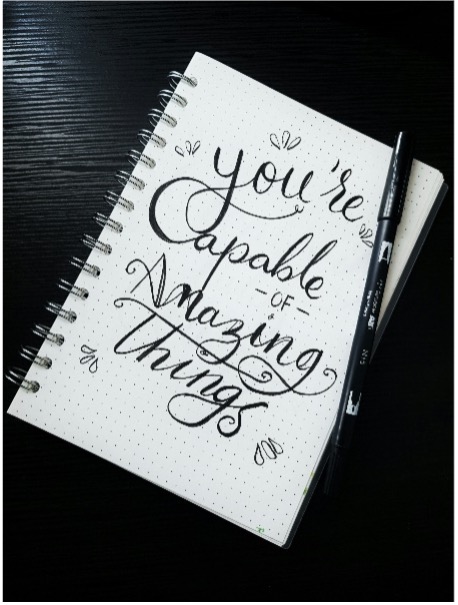 you're
Capable
- OF -
Amazing
Things